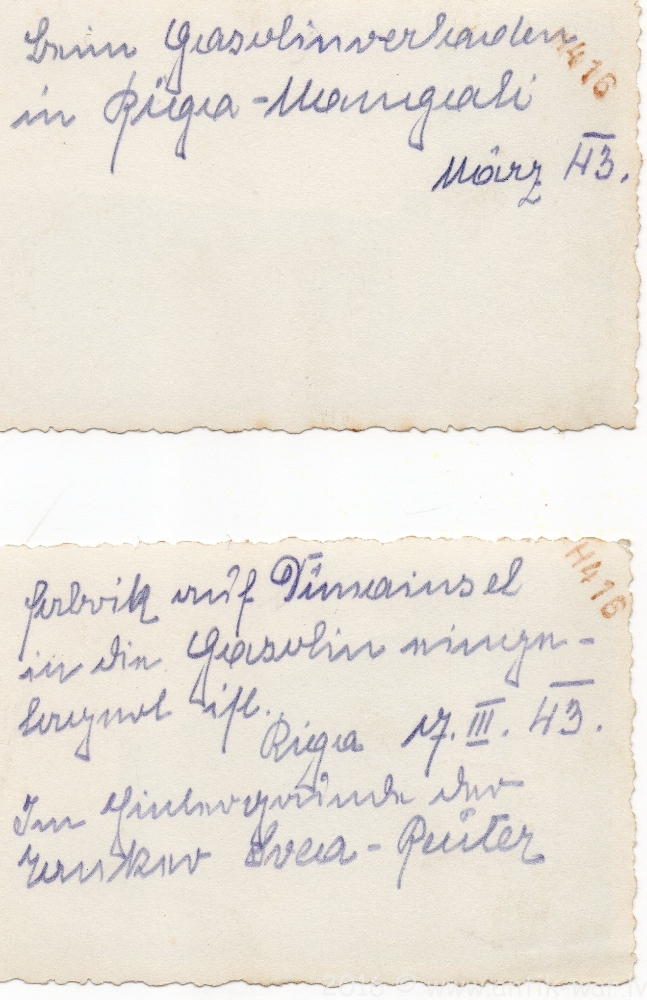 beim Gasolinverladen
H416
in Riga-Mangali
März 43.
H416
fabrik auf Dünainsel
in die Gasolin einge-
lagert ist.
Riga 17. III. 43.
Im Hintergrunde der
Tanker Svea-Reuter